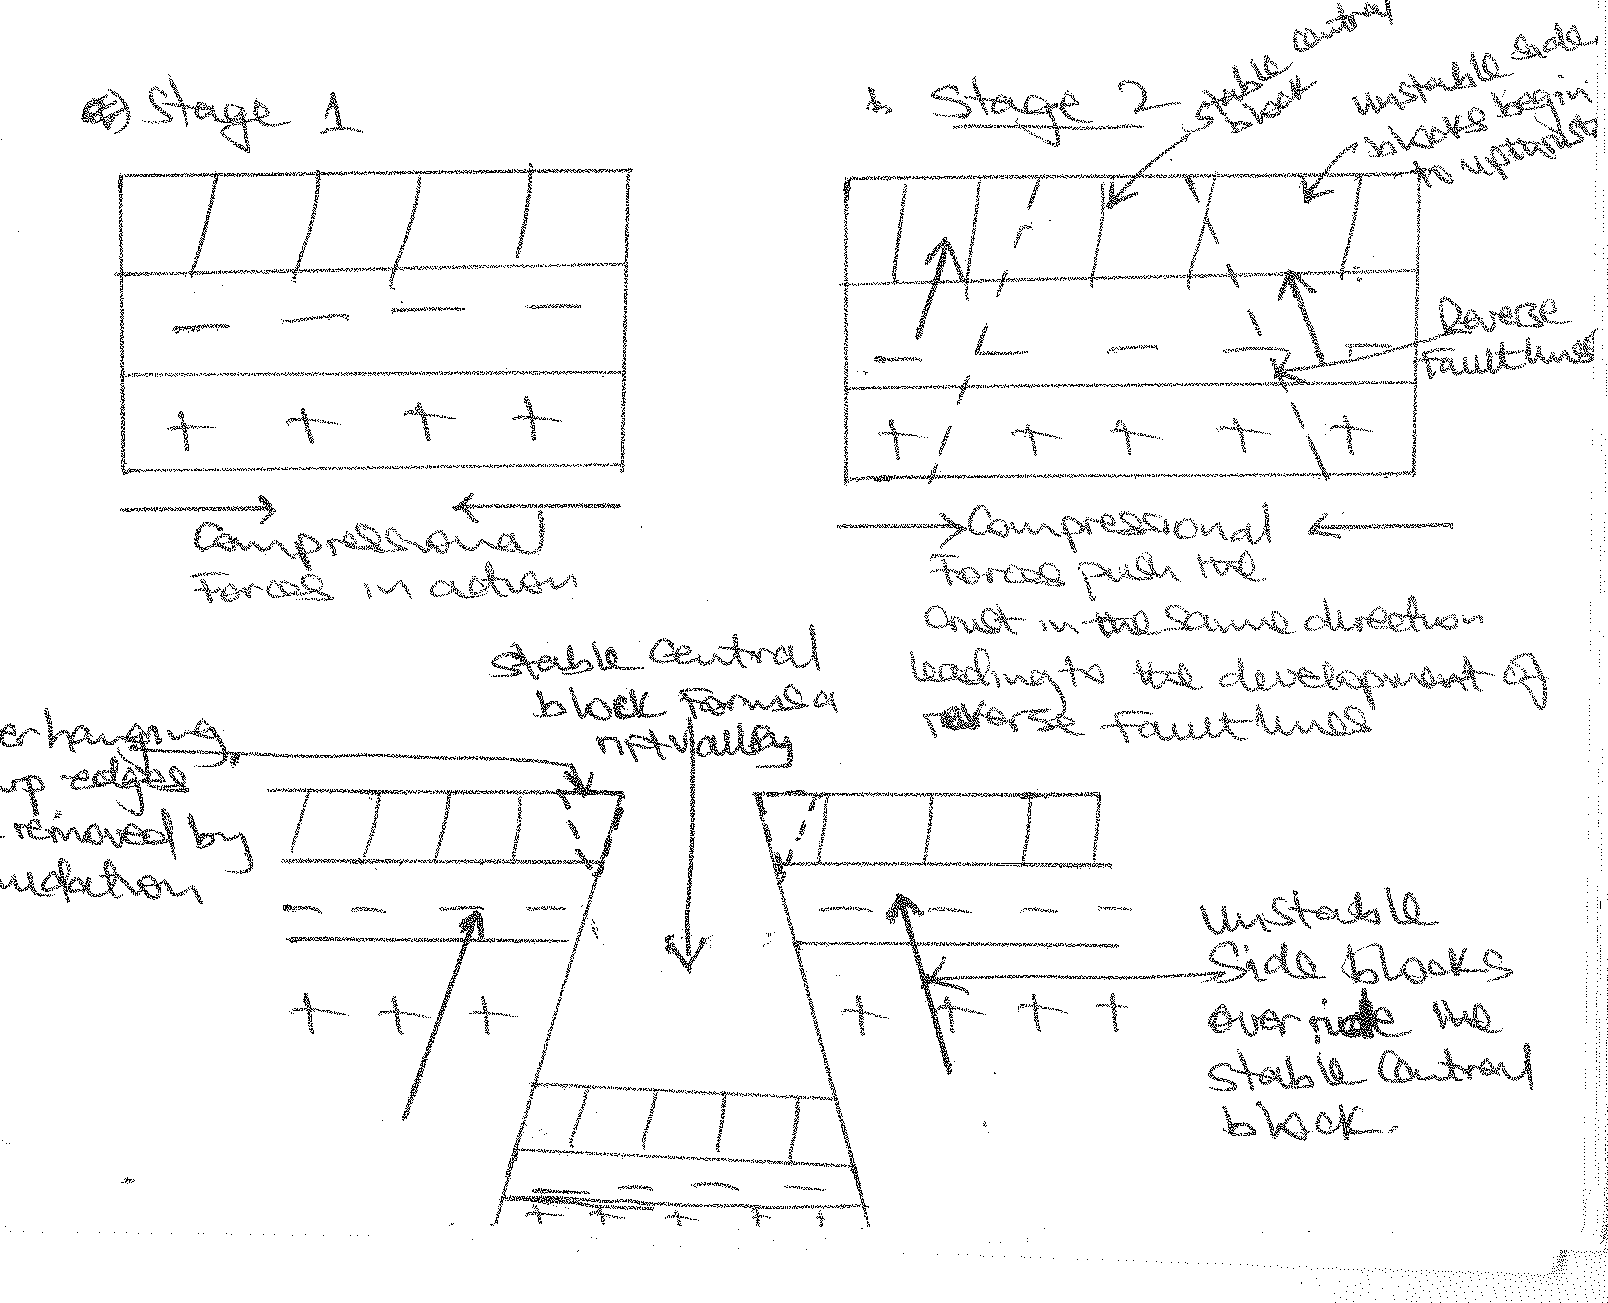 a) Stage 1
Compressional
Forces in action
b Stage 2
stable central
block
Unstable side
blocks begin
to upthrust
Reverse
Fault lines
Compressional
Forces push the
Crust in the same direction
leading to the development of
reverse Fault lines
stable Central
block Forms a
rift valley
erhanging
rp edges
removed by
nudation
Unstable
Side blocks
override the
stable Central
block.